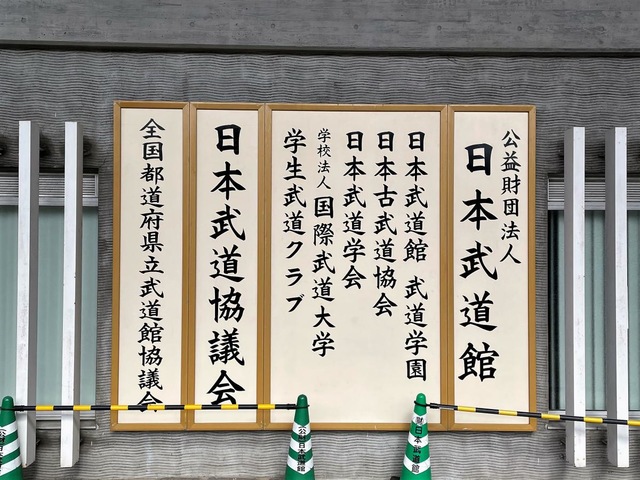 公益財団法人
日本武道館
日本武道館 武道学園
日本古武道協会
日本武道学会
学校法人 国際武道大学
学生武道クラブ
日本武道協議会
全国都道府県立武道館協議会
公財日本武道館
財日本武道館